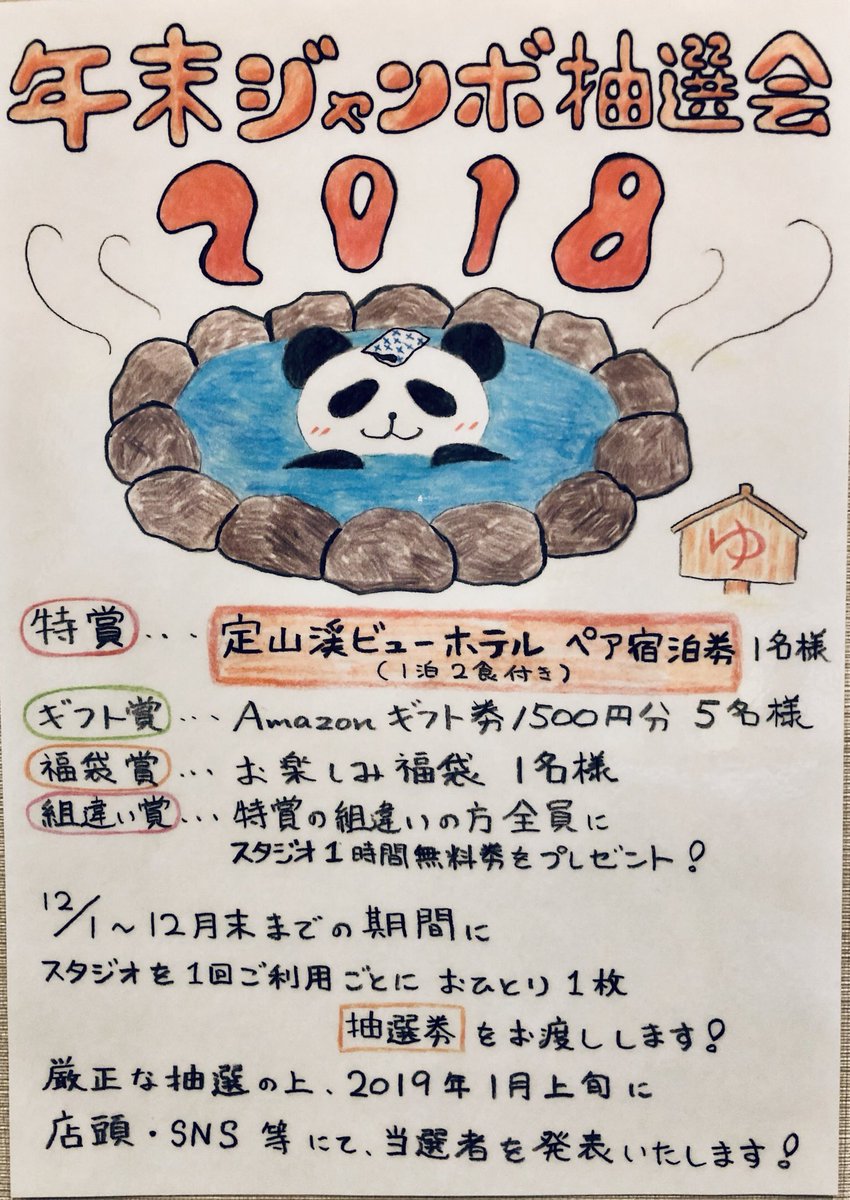 年末ジャンボ抽選会
2018
ゆ
特賞... 定山渓ビューホテル ペア宿泊券 1名様
(1泊2食付き)
ギフト賞... Amazonギフト券1500円分 5名様
福袋賞... お楽しみ福袋 1名様
組違い賞... 特賞の組違いの方全員に
スタジオ1時間無料券をプレゼント!
12/1~12月末までの期間に
スタジオを1回ご利用ごとに おひとり1枚
抽選券をお渡しします!
厳正な抽選の上、2019年1月上旬に
店頭・SNS等にて、当選者を発表いたします!